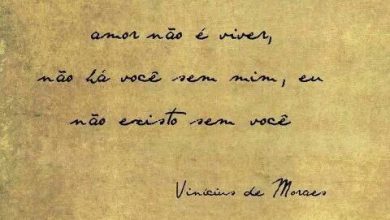 amor não é viver,
não há você sem mim, eu
não existo sem você
Vinícius de Moraes